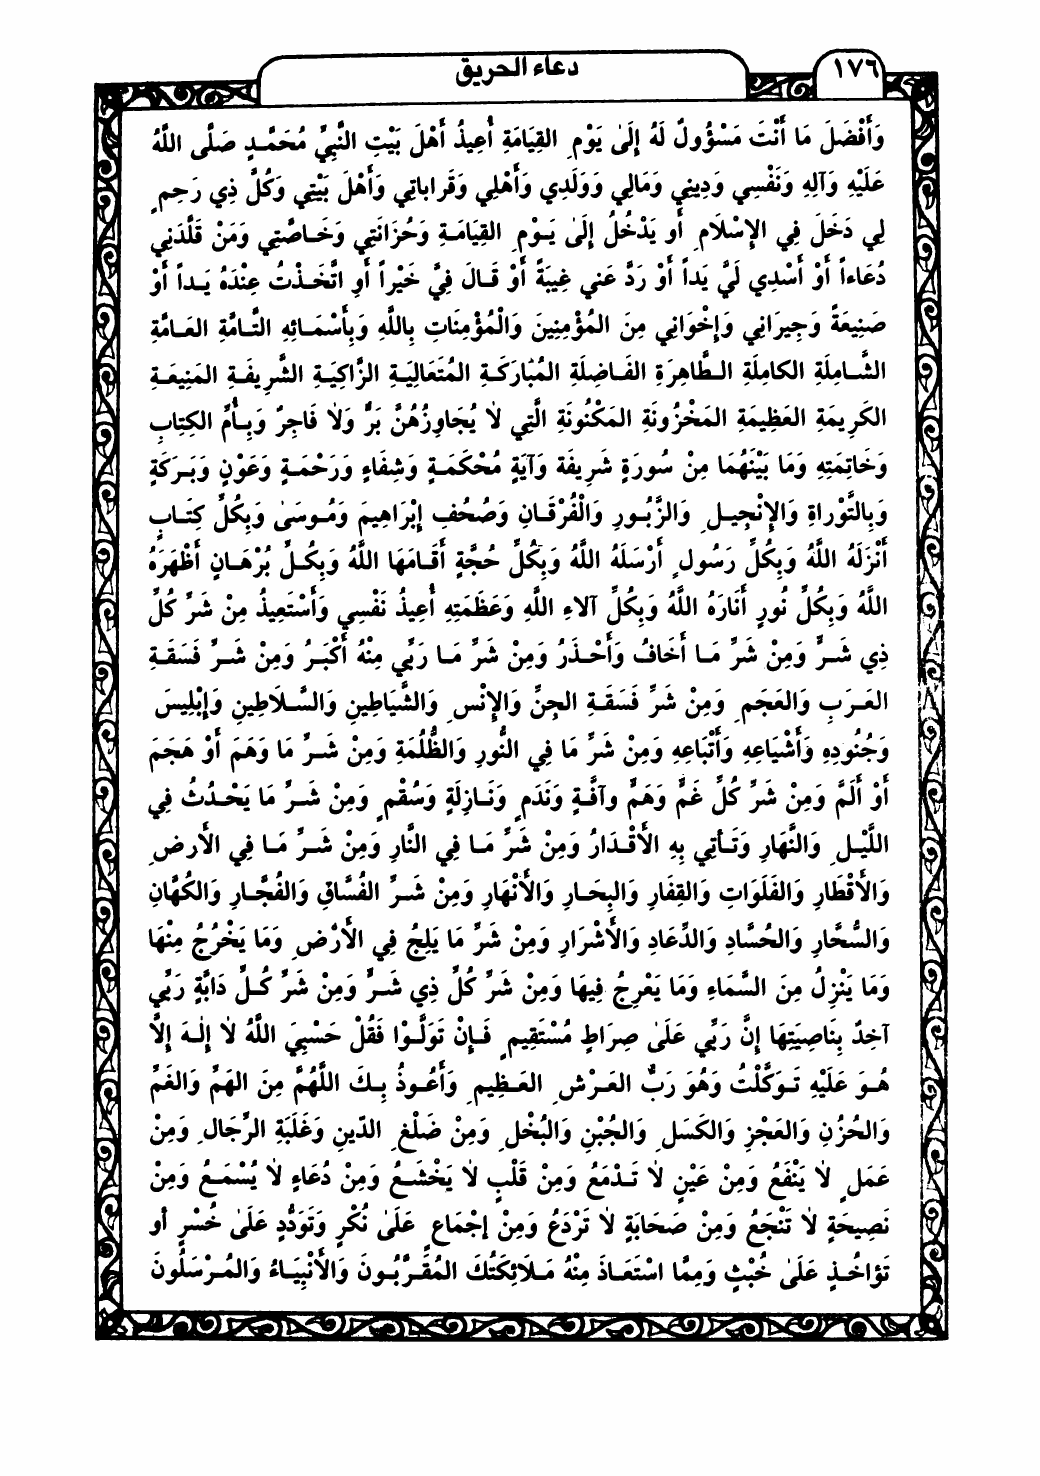 ١٧٦
دعاء الحريق
وَأَفْضَلَ مَا أَنْتَ مَسْؤُولٌ لَهُ إِلَىٰ يَوْمِ القِيَامَةِ أُعِيذُ أَهْلَ بَيْتِ النَّبِيِّ مُحَمَّدٍ صَلَّى اللَّهُ
عَلَيْهِ وَآلِهِ وَنَفْسِي وَدِينِي وَمَالِي وَوَلَدِي وَأَهْلِي وَقَراباتِي وَأَهْلَ بَيْتِي وَكُلَّ ذِي رَحِمٍ
لِي دَخَلَ فِي الإِسْلَامِ أَو يَدْخُلُ إِلَىٰ يَوْمِ القِيَامَةِ وَحُزَانَتِي وَخَاصَّتِي وَمَنْ قَلَّدَنِي
دُعَاءاً أَوْ أَسْدِي لَيَّ يَداً أَوْ رَدَّ عَني غِيبَةً أَوْ قَالَ فِيَّ خَيْراً أَوِ اتَّخَذْتُ عِنْدَهُ يَداً أَوْ
صَنِيعَةً وَجِيرَانِي وَإِخْوَانِي مِنَ المُؤْمِنِينَ وَالْمُؤْمِنَاتِ بِاللَّهِ وَبِأَسْمَائِهِ التَّامَّةِ العَامَّةِ
الشَّامِلَةِ الكامِلَةِ الطَّاهِرَةِ الفَاضِلَةِ المُبَارَكَةِ المُتَعَالِيَةِ الزَّاكِيَةِ الشَّرِيفَةِ المَنِيعَةِ
الكَرِيمَةِ العَظِيمَةِ المَخْزُونَةِ المَكْنُونَةِ الَّتِي لاَ يُجَاوِزُهُنَّ بَرٌّ وَلاَ فَاجِرٌ وَبِأُمِّ الكِتَابِ
وَخَاتِمَتِهِ وَمَا بَيْنَهُمَا مِنْ سُورَةٍ شَرِيفَة وَآيَةٍ مُحْكَمَةٍ وَشِفَاءٍ وَرَحْمَةٍ وَعَوْنٍ وَبَرَكَةٍ
وَبِالتَّوْراةِ وَالإِنْجِيلِ وَالزَّبُورِ وَالْفُرْقَانِ وَصُحُفِ إِبْرَاهِيمَ وَمُوسَىٰ وَبِكُلِّ كِتَابٍ
أَنْزَلَهُ اللَّهُ وَبِكُلِّ رَسُولٍ أَرْسَلَهُ اللَّهُ وَبِكُلِّ حُجَّةٍ أَقَامَهَا اللَّهُ وَبِكُلِّ بُرْهَانٍ أَظْهَرَهُ
اللَّهُ وَبِكُلِّ نُورٍ أَنَارَهُ اللَّهُ وَبِكُلِّ آلاءِ اللَّهِ وَعَظَمَتِهِ أُعِيذُ نَفْسِي وَأَسْتَعِيذُ مِنْ شَرِّ كُلِّ
ذِي شَرٍّ وَمِنْ شَرِّ مَا أَخَافُ وَأَحْذَرُ وَمِنْ شَرِّ مَا رَبِّي مِنْهُ أَكْبَرُ وَمِنْ شَرِّ فَسَقَةِ
العَرَبِ وَالعَجَمِ وَمِنْ شَرِّ فَسَقَةِ الجِنِّ وَالإِنْسِ وَالشَّيَاطِينِ وَالسَّلاَطِينِ وَإِبْلِيسَ
وَجُنُودِهِ وَأَشْيَاعِهِ وَأَتْبَاعِهِ وَمِنْ شَرِّ مَا فِي النُّورِ وَالظُّلُمَةِ وَمِنْ شَرِّ مَا وَهَمَ أَوْ هَجَمَ
أَوْ أَلَمَّ وَمِنْ شَرِّ كُلِّ غَمٍّ وَهَمٍّ وآفَةٍ وَنَدَمٍ وَنَازِلَةٍ وَسُقْمٍ وَمِنْ شَرِّ مَا يَحْدُثُ فِي
اللَّيْلِ وَالنَّهَارِ وَتَأتِي بِهِ الأَقْدَارُ وَمِنْ شَرِّ مَا فِي النَّارِ وَمِنْ شَرِّ مَا فِي الأَرضِ
وَالأَقْطَارِ وَالفَلَوَاتِ وَالقِفَارِ وَالبِحَارِ وَالأَنْهَارِ وَمِنْ شَرِّ الفُسَّاقِ وَالفُجَّارِ وَالكُهَّانِ
وَالسُّحَّارِ وَالحُسَّادِ وَالدَّعَادِ وَالأَشْرَارِ وَمِنْ شَرِّ مَا يَلِجُ فِي الأَرْضِ وَمَا يَخْرُجُ مِنْهَا
وَمَا يَنْزِلُ مِنَ السَّمَاءِ وَمَا يَعْرِجُ فِيهَا وَمِنْ شَرِّ كُلِّ ذِي شَرٍّ وَمِنْ شَرِّ كُلِّ دَابَّةٍ رَبِّي
آخِذٌ بِنَاصِيَتِهَا إِنَّ رَبِّي عَلَىٰ صِرَاطٍ مُسْتَقِيمٍ فَإِنْ تَوَلَّوْا فَقُلْ حَسْبِيَ اللَّهُ لاَ إِلٰهَ إِلاَّ
هُوَ عَلَيْهِ تَوَكَّلْتُ وَهُوَ رَبُّ العَرْشِ العَظِيمِ وَأَعُوذُ بِكَ اللَّهُمَّ مِنَ الهَمِّ وَالغَمِّ
وَالحُزْنِ وَالعَجْزِ وَالكَسَلِ وَالجُبْنِ وَالبُخْلِ وَمِنْ ضَلْعِ الدَّينِ وَغَلَبَةِ الرِّجَالِ وَمِنْ
عَمَلٍ لاَ يَنْفَعُ وَمِنْ عَيْنٍ لاَ تَدْمَعُ وَمِنْ قَلْبٍ لاَ يَخْشَعُ وَمِنْ دُعَاءٍ لاَ يُسْمَعُ وَمِنْ
نَصِيحَةٍ لاَ تَنْجَعُ وَمِنْ صَحَابَةٍ لاَ تَرْدَعُ وَمِنْ إِجْمَاعٍ عَلَىٰ نُكْرٍ وَتَوَدُّدٍ عَلَىٰ خُسْرٍ أو
تَؤاخُذٍ عَلَىٰ خُبْثٍ وَمِمَّا اسْتَعَاذَ مِنْهُ مَلَائِكَتُكَ المُقَرَّبُونَ وَالأَنْبِيَاءُ وَالمُرْسَلُونَ